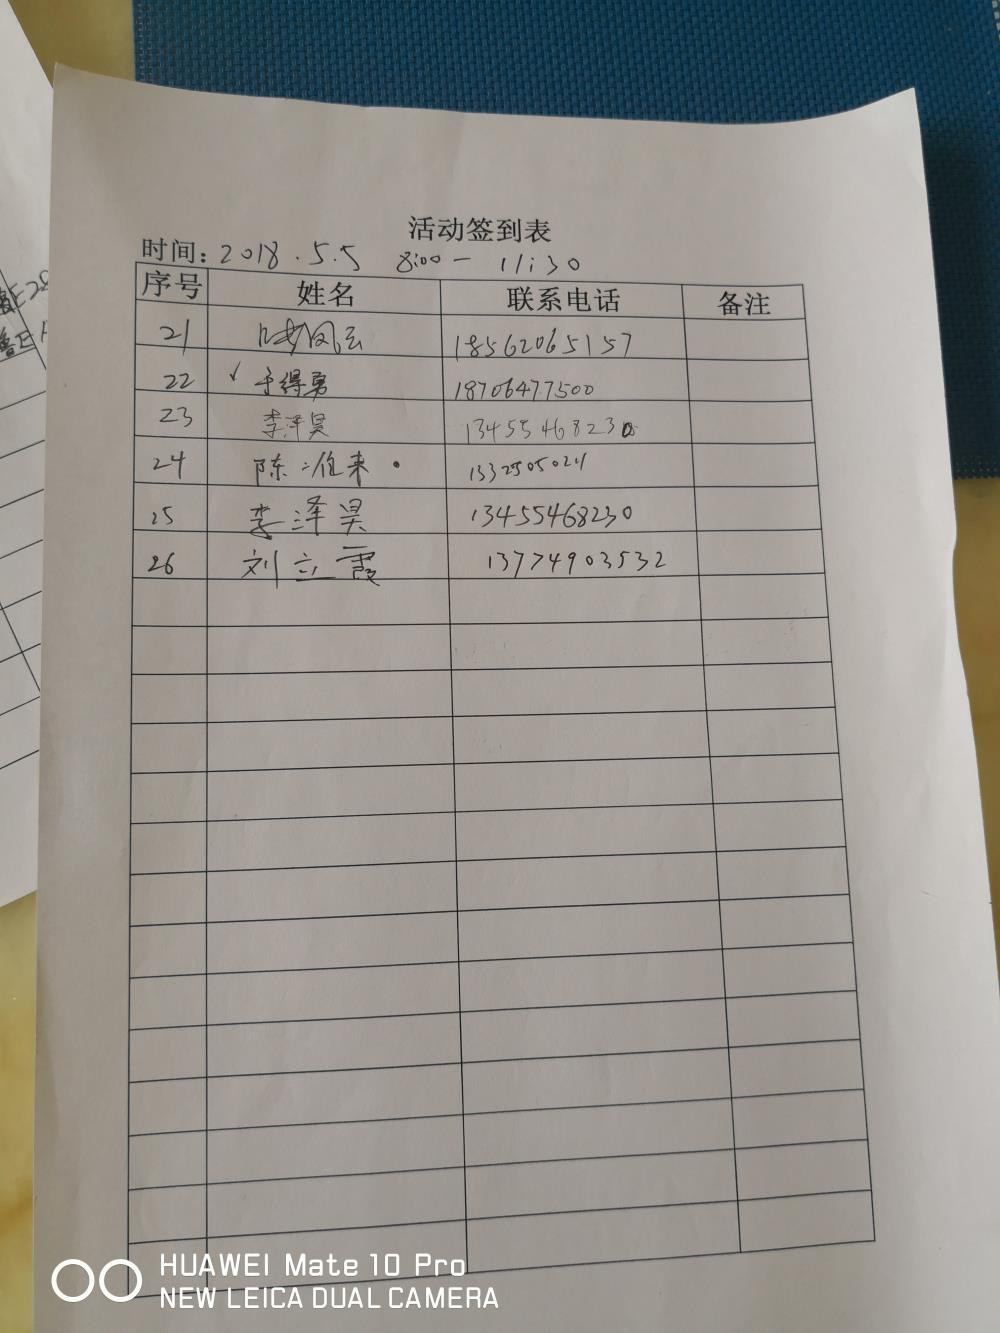 活动签到表
时间: 2018.5.5 8:00 - 11:30
序号 姓名 联系电话 备注
21 18562065157
22 ✓ 于得勇 18706477500
23 李泽昊 13455468230
24 陈淮来 .
25 李泽昊 13455468230
26 刘立霞 13774903532
HUAWEI Mate 10 Pro
NEW LEICA DUAL CAMERA